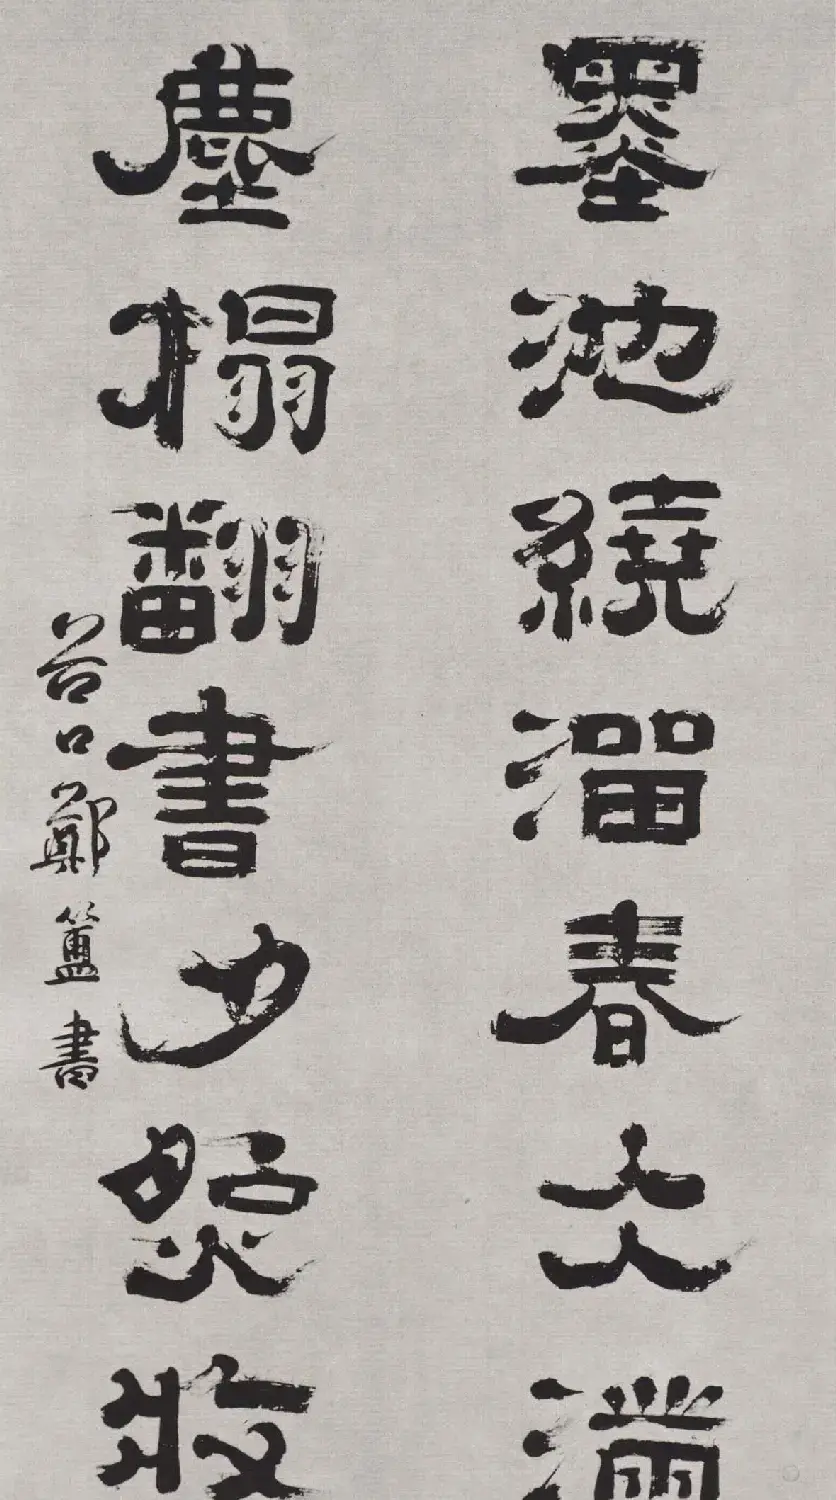 墨池繞溜春仌滿
塵榻翻書夕照收
谷口鄭簠書